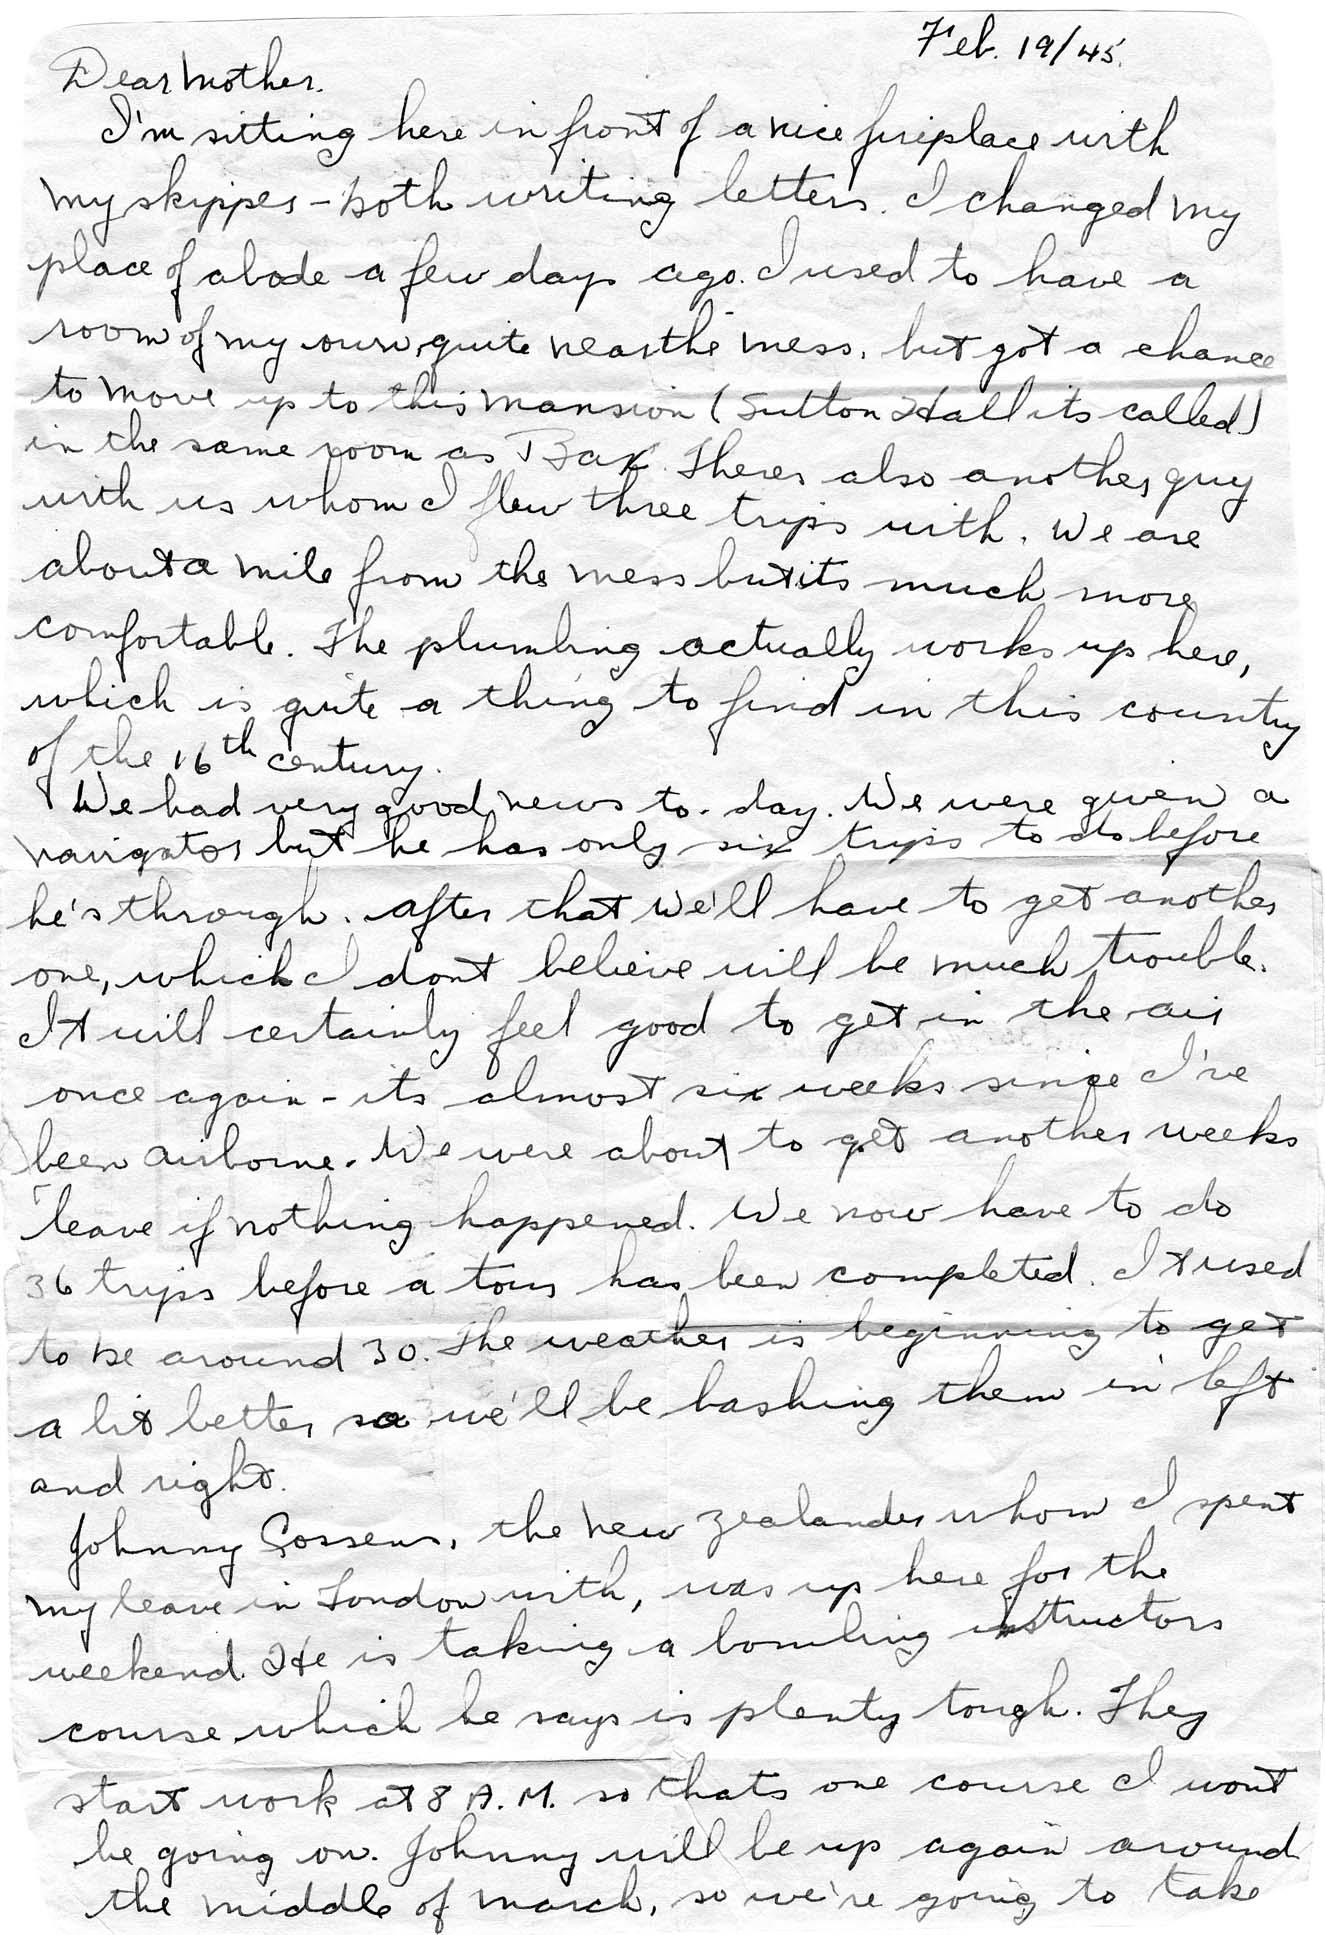 Feb. 19/45.
Dear Mother.
I'm sitting here in front of a nice fireplace with
my skipper - both writing letters. I changed my
place of abode a few days ago. I used to have a
room of my own, quite near the mess, but got a chance
to move up to this mansion (Sutton Hall its called)
in the same room as Bax. Theres also another guy
with us whom I flew three trips with. We are
about a mile from the mess but its much more
comfortable. The plumbing actually works up here,
which is quite a thing to find in this country
of the 16th century.
We had very good news to-day. We were given a
navigator but he has only six trips to do before
he's through. After that we'll have to get another
one, which I dont believe will be much trouble.
It will certainly feel good to get in the air
once again - its almost six weeks since I've
been airborne. We were about to get another weeks
leave if nothing happened. We now have to do
36 trips before a tour has been completed. It used
to be around 30. The weather is beginning to get
a bit better so we'll be bashing them in left
and right.
Johnny Gossens, the New Zealander whom I spent
my leave in London with, was up here for the
weekend. He is taking a bombing instructors
course which he says is plenty tough. They
start work at 8 A.M. so thats one course I wont
be going on. Johnny will be up again around
the middle of March, so we're going to take